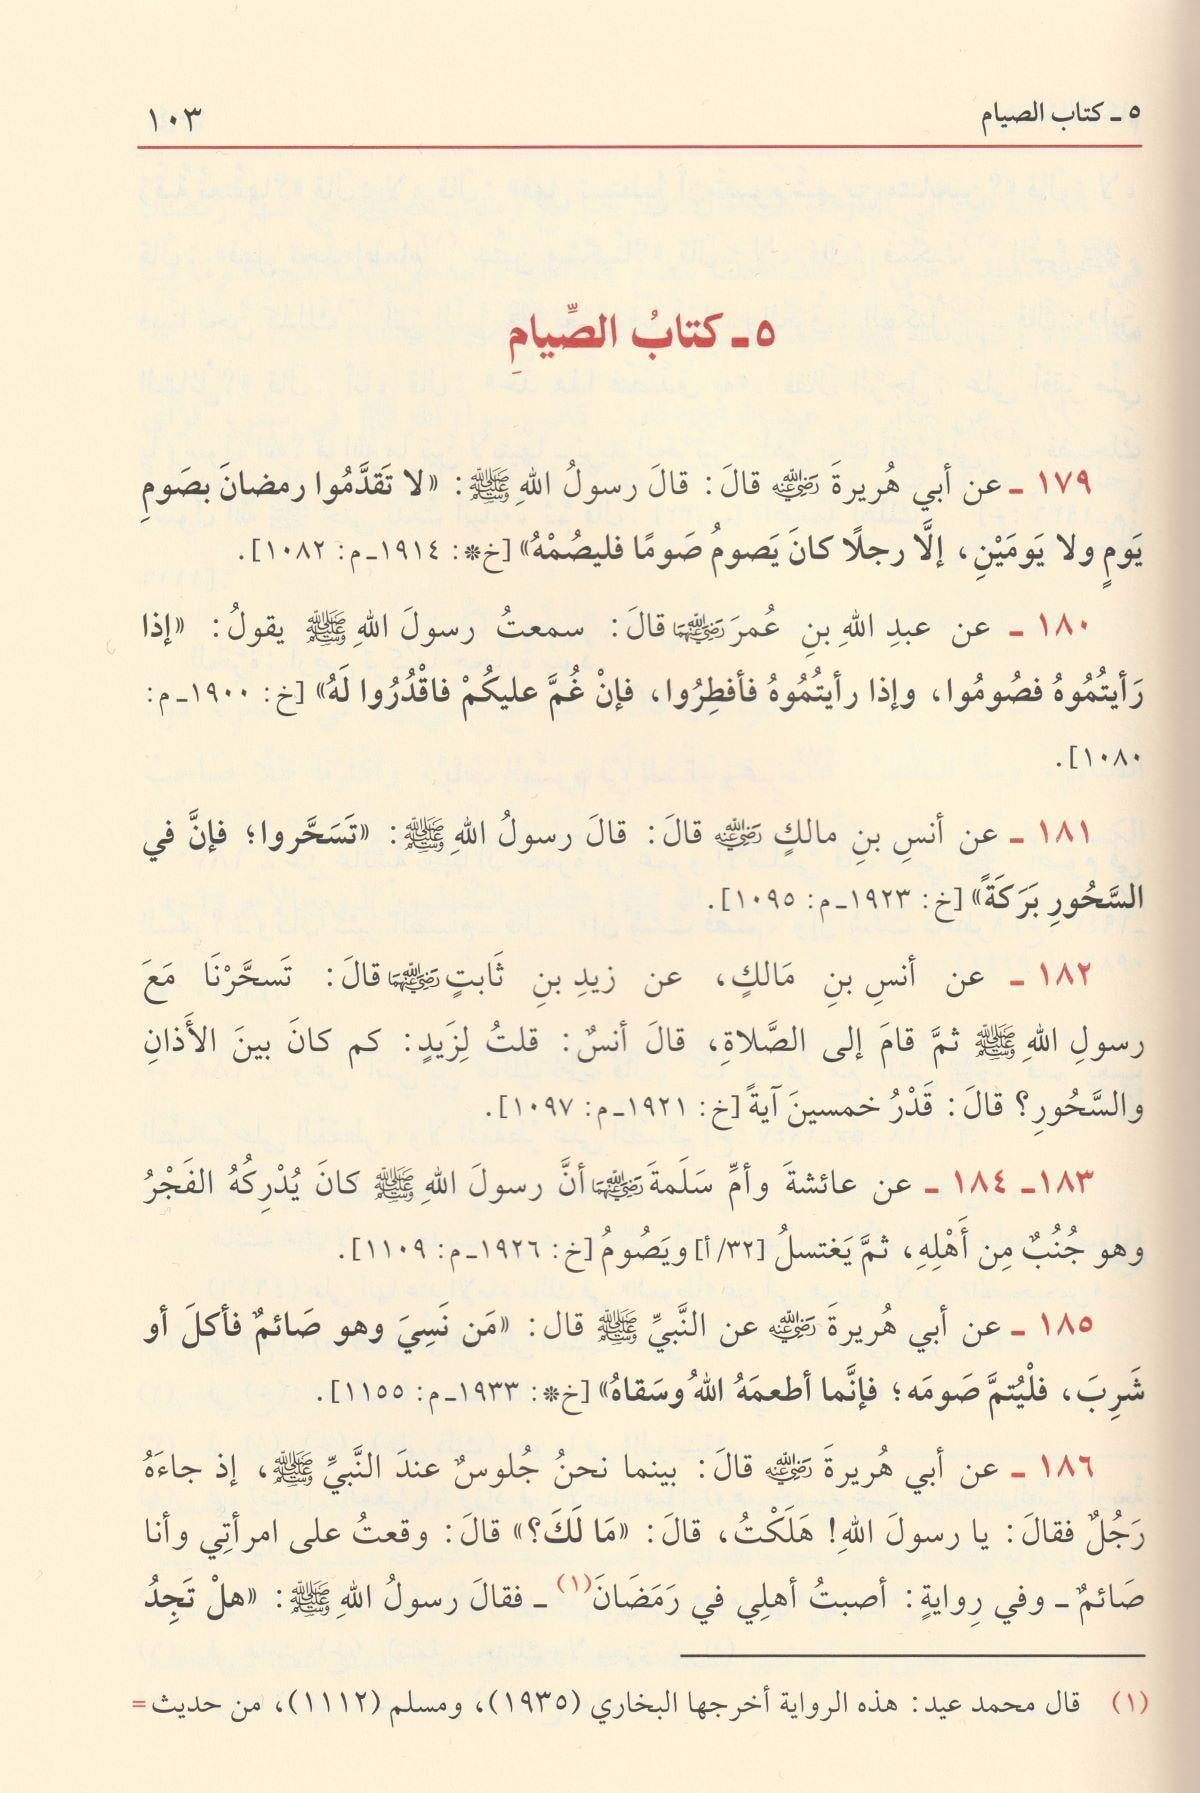 ٥ ـ كتاب الصيام
١٠٣
٥ ـ كتابُ الصِّيامِ
١٧٩ ـ عن أبي هُريرةَ رَضِيَ اللهُ عَنْهُ قالَ: قالَ رسولُ اللهِ ﷺ: «لا تَقدَّمُوا رمضانَ بصَومِ
يَومٍ ولا يَومَيْنِ، إلَّا رجلًا كانَ يَصومُ صَومًا فليصُمْهُ» [خ*: ١٩١٤ـ م: ١٠٨٢].
١٨٠ ـ عن عبدِ اللهِ بنِ عُمرَ رَضِيَ اللهُ عَنْهُمَا قالَ: سمعتُ رسولَ اللهِ ﷺ يقولُ: «إذا
رَأيتُمُوهُ فصُومُوا، وإذا رأيتُمُوهُ فأفطِرُوا، فإنْ غُمَّ عليكُمْ فاقْدُرُوا لَهُ» [خ: ١٩٠٠ـ م:
١٠٨٠].
١٨١ ـ عن أنسِ بنِ مالكٍ رَضِيَ اللهُ عَنْهُ قالَ: قالَ رسولُ اللهِ ﷺ: «تَسَحَّروا؛ فإنَّ في
السَّحُورِ بَرَكَةً» [خ: ١٩٢٣ـ م: ١٠٩٥].
١٨٢ ـ عن أنسِ بنِ مَالكٍ، عن زيدِ بنِ ثَابتٍ رَضِيَ اللهُ عَنْهُمَا قالَ: تَسحَّرْنَا مَعَ
رسولِ اللهِ ﷺ ثمَّ قامَ إلى الصَّلاةِ، قالَ أنسٌ: قلتُ لِزَيدٍ: كم كانَ بينَ الأَذانِ
والسَّحُورِ؟ قالَ: قَدْرُ خمسينَ آيةً [خ: ١٩٢١ـ م: ١٠٩٧].
١٨٣ـ ١٨٤ ـ عن عائشةَ وأمِّ سَلَمةَ رَضِيَ اللهُ عَنْهُمَا أنَّ رسولَ اللهِ ﷺ كانَ يُدْرِكُهُ الفَجْرُ
وهو جُنُبٌ مِن أَهْلِهِ، ثمَّ يَغتسلُ [٣٢/ أ] ويَصُومُ [خ: ١٩٢٦ـ م: ١١٠٩].
١٨٥ ـ عن أبي هُريرةَ رَضِيَ اللهُ عَنْهُ عن النَّبيِّ ﷺ قال: «مَن نَسِيَ وهو صَائمٌ فأكلَ أو
شَرِبَ، فلْيُتمَّ صَومَه؛ فإنَّما أطعمَهُ اللهُ وسَقاهُ» [خ*: ١٩٣٣ـ م: ١١٥٥].
١٨٦ ـ عن أبي هُريرةَ رَضِيَ اللهُ عَنْهُ قالَ: بينما نحنُ جُلوسٌ عندَ النَّبيِّ ﷺ، إذ جاءَهُ
رَجُلٌ فقالَ: يا رسولَ اللهِ! هَلَكْتُ، قالَ: «مَا لَكَ؟» قالَ: وقعتُ على امرأتِي وأنا
صَائمٌ ـ وفي رِوايةٍ: أصبتُ أهلِي في رَمَضَانَ(١) ـ فقالَ رسولُ اللهِ ﷺ: «هلْ تَجِدُ
(١) قال محمد عيد: هذه الرواية أخرجها البخاري (١٩٣٥)، ومسلم (١١١٢)، من حديث =